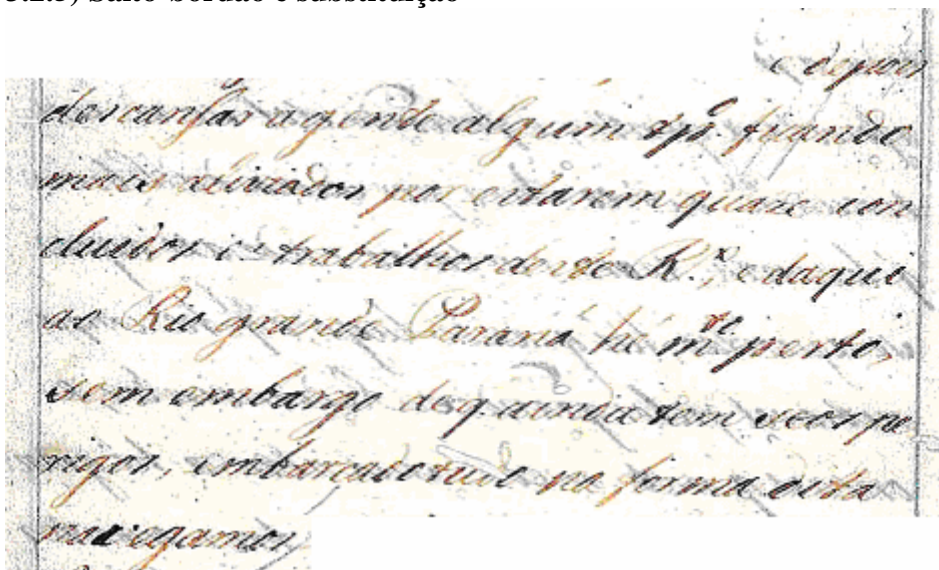 e depois
descançar a gente algum tp.º ficando
mais aliviados por estarem quaze con
cluidos os trabalhos deste R.º, e daqui
ao Rio grande Paraná hé m.to perto,
sem embargo de q. ainda tem seos pe
rigos, embarcado tudo na forma esta
navegamos